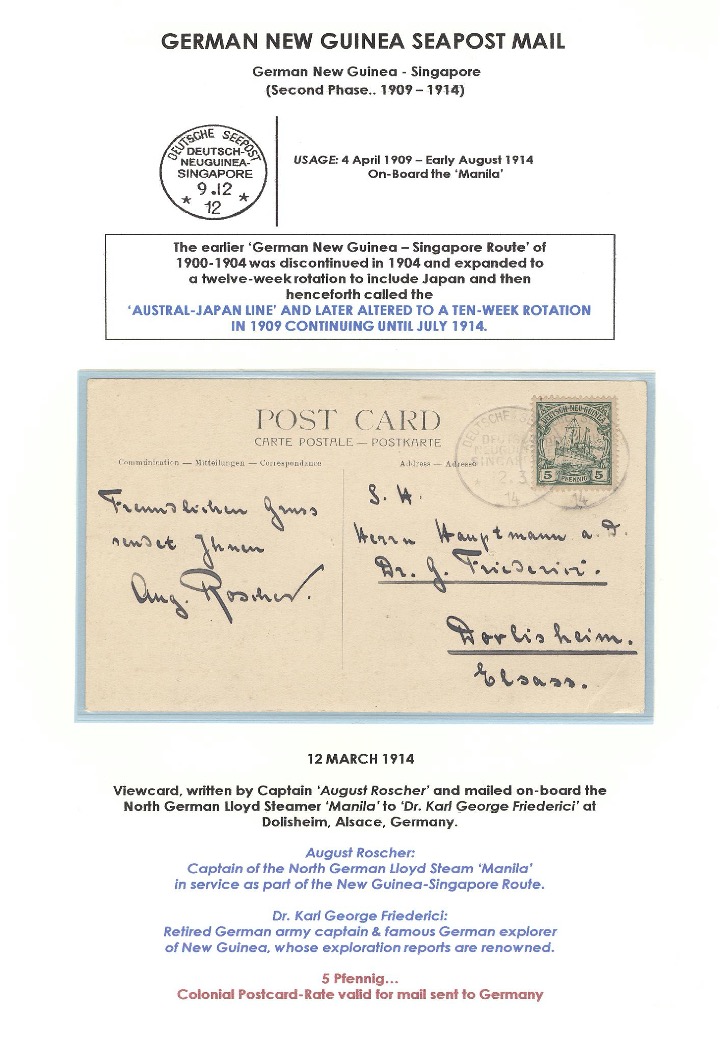 GERMAN NEW GUINEA SEAPOST MAIL
German New Guinea - Singapore
(Second Phase.. 1909 – 1914)
DEUTSCHE SEEPOST
DEUTSCH-
NEUGUINEA-
SINGAPORE
9.12
* *
12
USAGE: 4 April 1909 – Early August 1914
On-Board the 'Manila'
The earlier 'German New Guinea – Singapore Route' of
1900-1904 was discontinued in 1904 and expanded to
a twelve-week rotation to include Japan and then
henceforth called the
'AUSTRAL-JAPAN LINE' AND LATER ALTERED TO A TEN-WEEK ROTATION
IN 1909 CONTINUING UNTIL JULY 1914.
POST CARD
CARTE POSTALE — POSTKARTE
Communication — Mitteilungen — Correspondence
Address — Adresse
DEUTSCH-NEU-GUINEA
5 PFENNIG 5
14
14
Freundlichen Gruss
sendet Ihnen
Aug. Roscher.
S. H.
Herrn Hauptmann a. D.
Dr. G. Friederici.
Dorlisheim.
Elsass.
12 MARCH 1914
Viewcard, written by Captain 'August Roscher' and mailed on-board the
North German Lloyd Steamer 'Manila' to 'Dr. Karl George Friederici' at
Dolisheim, Alsace, Germany.
August Roscher:
Captain of the North German Lloyd Steam 'Manila'
in service as part of the New Guinea-Singapore Route.
Dr. Karl George Friederici:
Retired German army captain & famous German explorer
of New Guinea, whose exploration reports are renowned.
5 Pfennig...
Colonial Postcard-Rate valid for mail sent to Germany